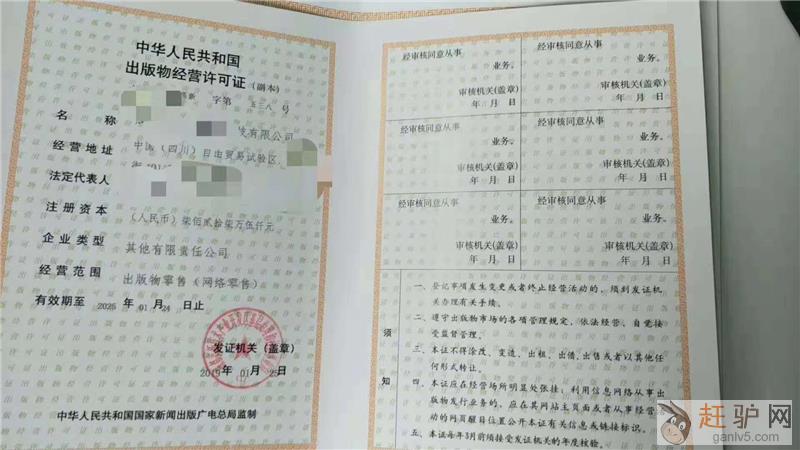 中华人民共和国
出版物经营许可证(副本)
字第 五三八 号
名 称 有限公司
经营地址 中国(四川)自由贸易试验区
法定代表人
注册资本 (人民币)柒佰贰拾柒万伍仟元
企业类型 其他有限责任公司
经营范围 出版物零售(网络零售)
有效期至 2025 年 01 月 24 日止
发证机关(盖章)
2019 年 01 月 25 日
中华人民共和国国家新闻出版广电总局监制
经审核同意从事
业务。
审核机关(盖章)
年 月 日
经审核同意从事
业务。
审核机关(盖章)
年 月 日
经审核同意从事
业务。
审核机关(盖章)
年 月 日
经审核同意从事
业务。
审核机关(盖章)
年 月 日
经审核同意从事
业务。
审核机关(盖章)
年 月 日
经审核同意从事
业务。
审核机关(盖章)
年 月 日
须知
一、登记事项发生变更或者终止经营活动的,须到发证机
关办理有关手续。
二、遵守出版物市场的各项管理规定,依法经营、自觉接
受监督管理。
三、本证不得涂改、变造、出租、出借、出售或者以其他任
何形式转让。
四、本证应在经营场所明显处张挂,利用信息网络从事出
版物发行业务的,应在其网站主页面或者从事经营活
动的网页醒目位置公开本证有关信息或链接标识。
五、本证每年3月前须接受发证机关的年度核验。
赶驴网
ganlv5.com